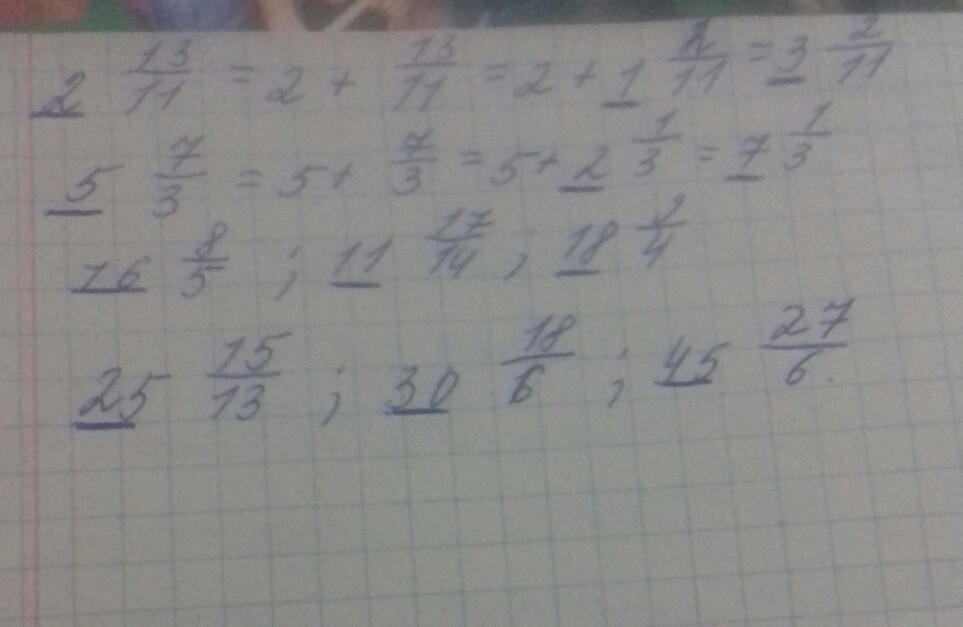 2 13/11 = 2 + 13/11 = 2 + 1 2/11 = 3 2/11
5 7/3 = 5 + 7/3 = 5 + 2 1/3 = 7 1/3
76 8/5 ; 11 17/14 ; 18 9/4
25 15/13 ; 30 18/6 ; 45 27/6.